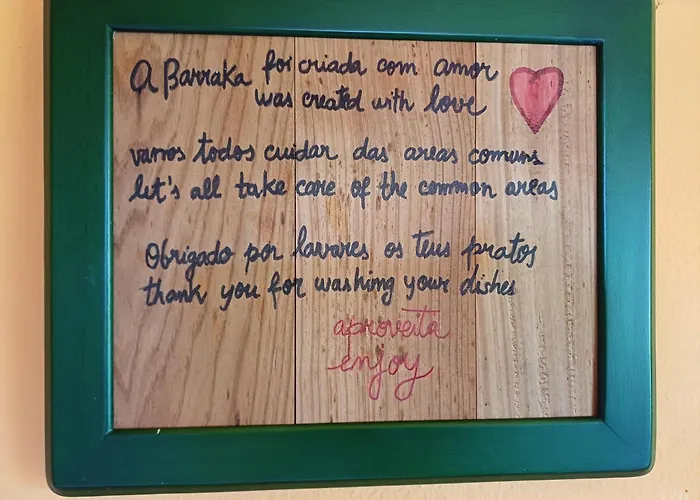 A Barraka foi criada com amor
was created with love
vamos todos cuidar das areas comuns
let's all take care of the common areas
Obrigado por lavares os teus pratos
thank you for washing your dishes
aproveita
enjoy